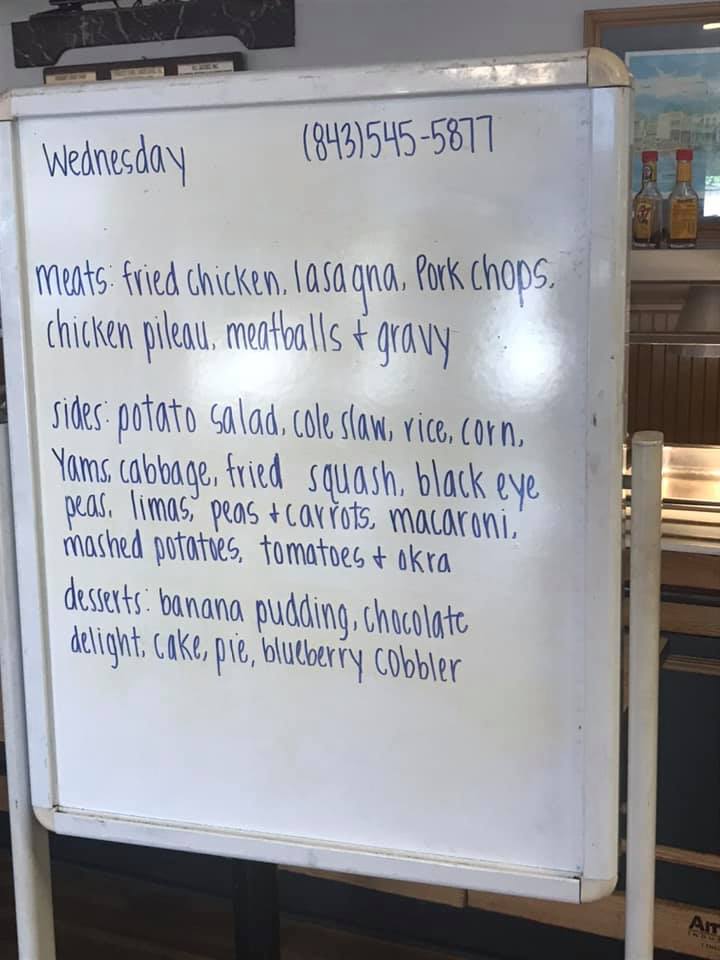 Wednesday (843)545-5877
meats: fried chicken, lasagna, Pork chops,
chicken pileau, meatballs + gravy
sides: potato salad, cole slaw, rice, corn,
Yams, cabbage, fried squash, black eye
peas, limas, peas + carrots, macaroni,
mashed potatoes, tomatoes + okra
desserts: banana pudding, chocolate
delight, cake, pie, blueberry cobbler
Am